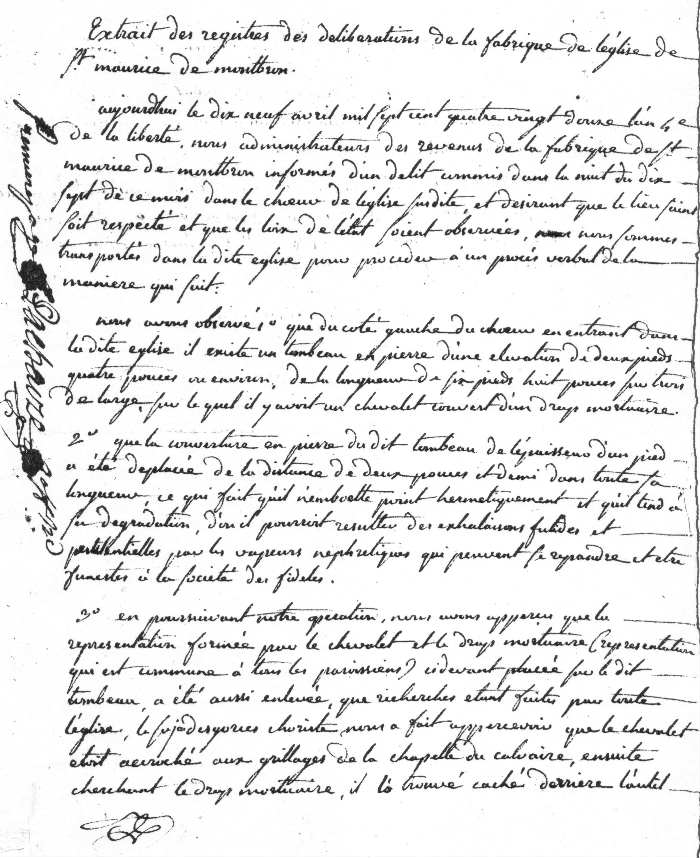 Extrait des registres des deliberations de la fabrique de léglise de
st maurice de montbron.
aujourdhui le dix neuf avril mil sept cent quatre vingt douze lan 4e
de la liberté, nous administrateurs des revenus de la fabrique de st
maurice de montbron informés dun delit commis dans la nuit du dix
sept de ce mois dans le chœur de léglise susdite, et desirant que le lieu saint
soit respecté et que les loix de létat soient observées, nous sommes
transportés dans la dite eglise pour proceder a un procés verbal de la
maniere qui suit.
nous avons observé 1o que du coté gauche du chœur en entrant dans
la dite eglise il existe un tombeau en pierre dune elevation de deux pieds
quatre pouces ou environ, de la longueur de six pieds huit pouces sur trois
de large, sur le quel il y avoit un chevalet couvert dun drap mortuaire.
2o que la couverture en pierre du dit tombeau de lépaisseur dun pied
a été deplacée de la distance de deux pouces et demi dans toute sa
longueur, ce qui fait quil nemboette point hermetiquement et quil tend à
sa degradation, doù il pourroit resulter des exhalaisons futides et
pestilentielles par les vapeurs nephretiques qui peuvent se repandre et etre
funestes à la societé des fideles.
3o en poursuivant notre operation, nous avons apperçu que la
representation formée par le chevalet et le drap mortuaire (representation
qui est commune à tous les paroissiens) cidevant placée sur le dit
tombeau, a été aussi enlevée, que recherches etant faites par toute
léglise, le s. jâ desgories choriste, nous a fait appercevoir que le chevalet
etoit accroché aux grillages de la chapelle du calvaire, ensuite
cherchant le drap mortuaire, il la trouvé caché derriere lautel